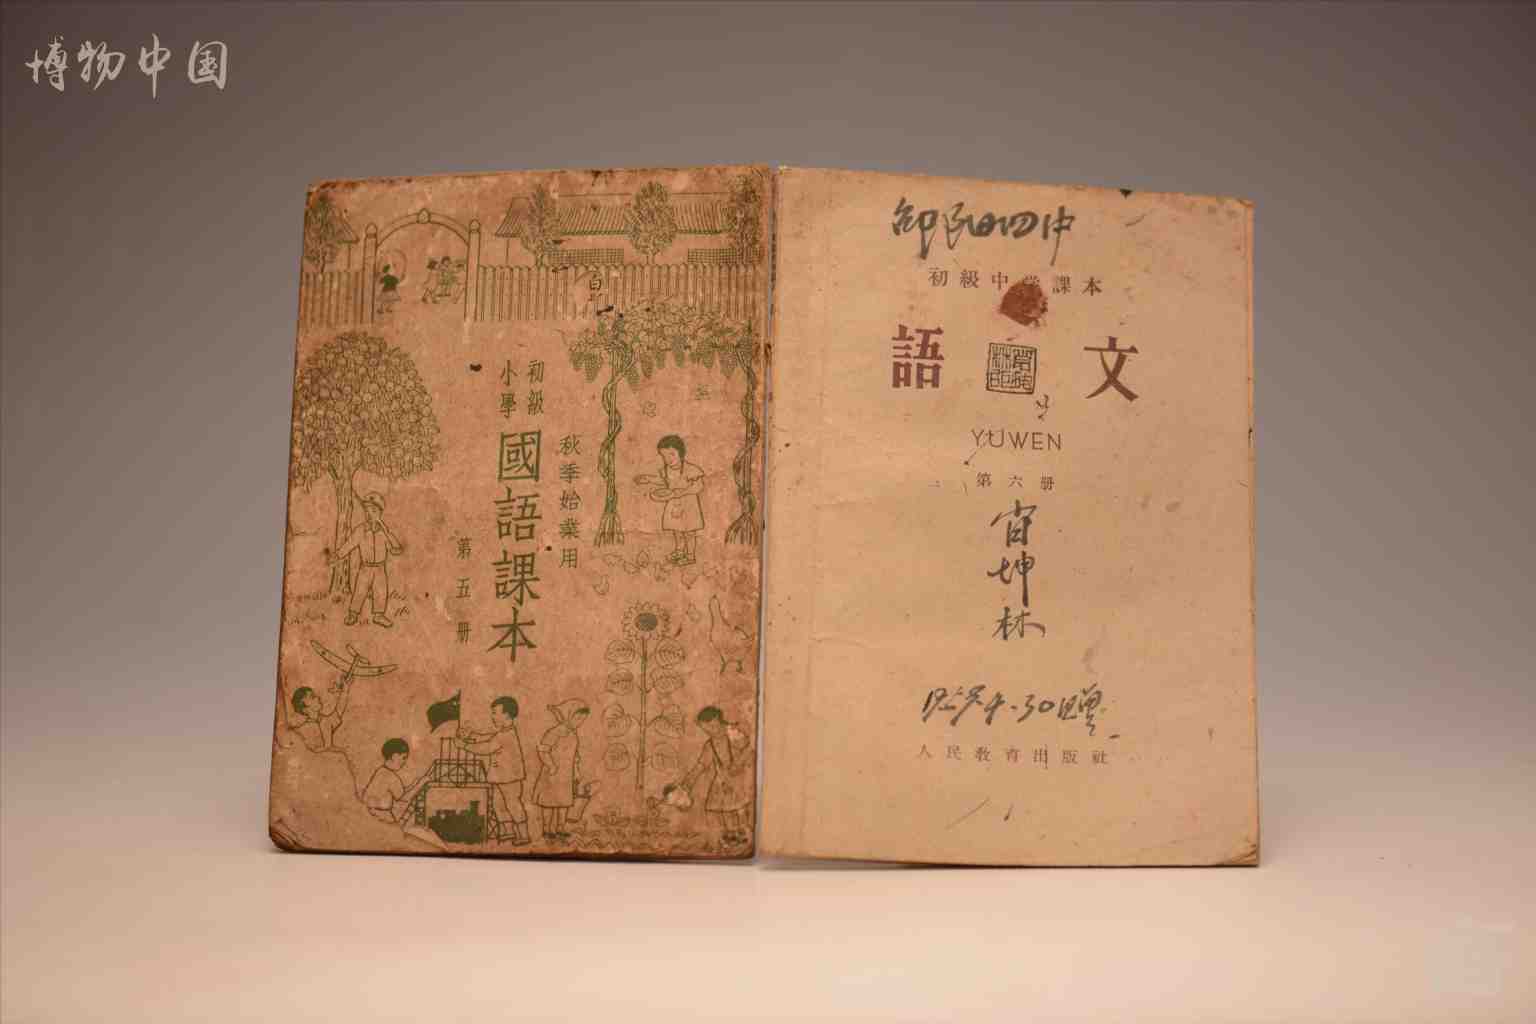 博物中国
初級
小學
國語課本
秋季始業用
第五册
初級中學課本
語文
YUWEN
第六册
坤林
人民教育出版社